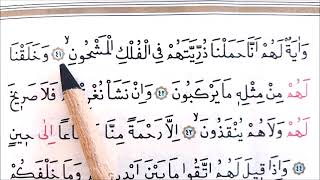 وَاٰيَةٌ لَهُمْ اَنَّا حَمَلْنَا ذُرِّيَّتَهُمْ فِي الْفُلْكِ الْمَشْحُونِۙ ﴿٤١﴾ وَخَلَقْنَا
لَهُمْ مِنْ مِثْلِه۪ مَا يَرْكَبُونَ ﴿٤٢﴾ وَاِنْ نَشَأْ نُغْرِقْهُمْ فَلَا صَر۪يخَ
لَهُمْ وَلَا هُمْ يُنْقَذُونَۙ ﴿٤٣﴾ اِلَّا رَحْمَةً مِنَّا وَمَتَاعًا اِلٰى ح۪ينٍ
﴿٤٤﴾ وَاِذَا ق۪يلَ لَهُمُ اتَّقُوا مَا بَيْنَ اَيْد۪يكُمْ وَمَا خَلْفَكُمْ